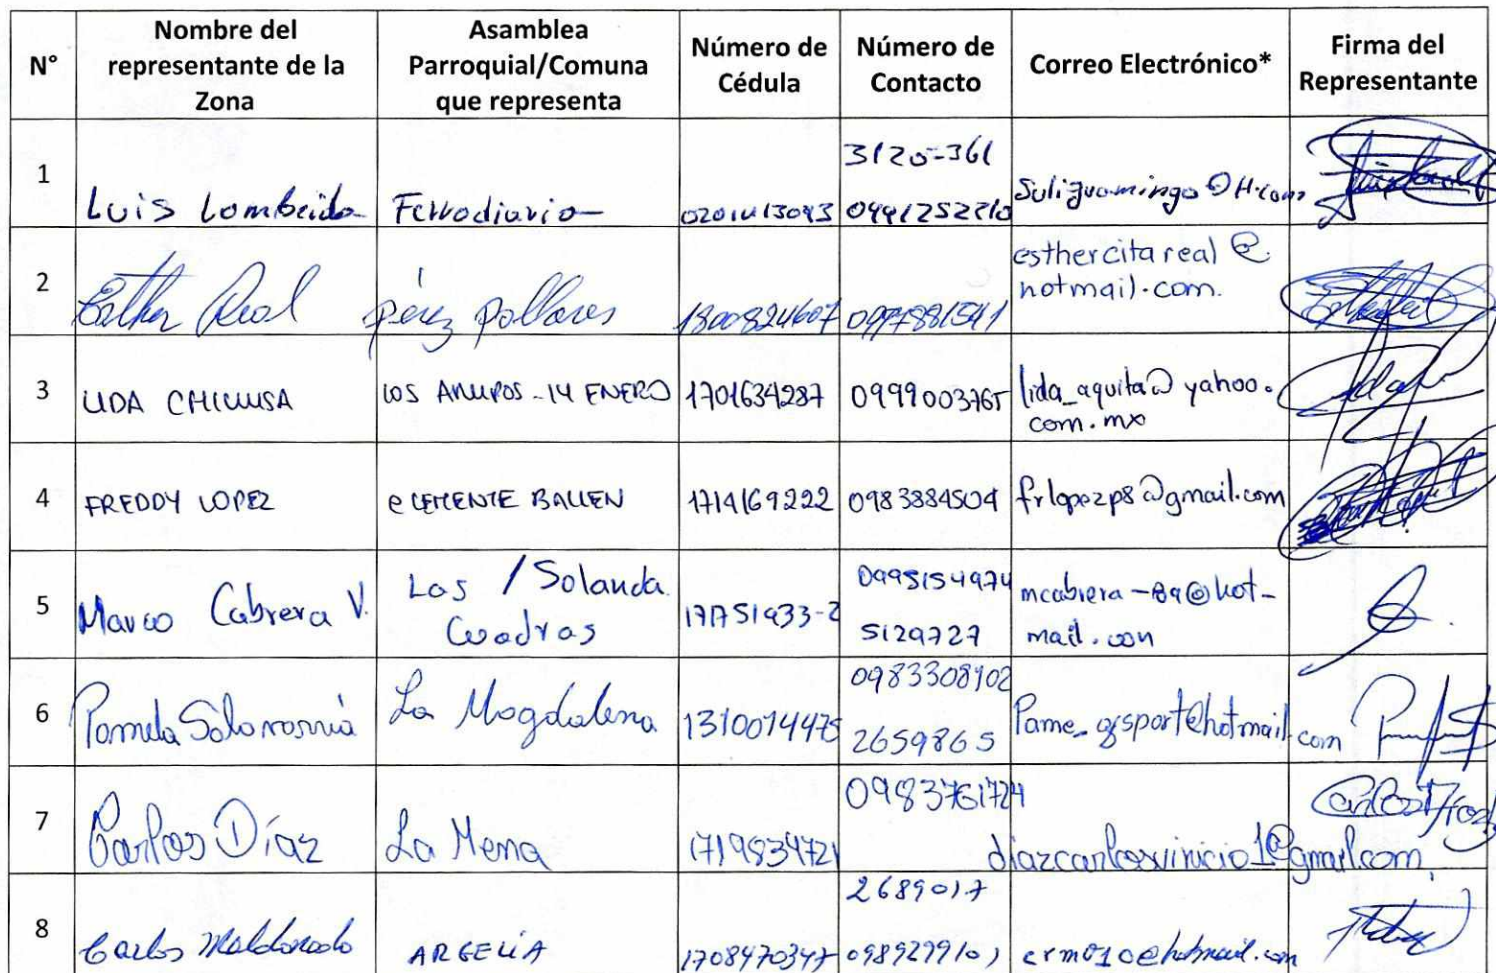 N°
Nombre del
representante de la
Zona
Asamblea
Parroquial/Comuna
que representa
Número de
Cédula
Número de
Contacto
Correo Electrónico*
Firma del
Representante
1
Luis Lombeida
Ferrodiario
3120-361
2
Esther Real
pérez pallares
1800824607
0997881541
esthercitareal @
hotmail.com.
3
LIDA CHILUISA
LOS ANUPOS - 14 ENERO
1701634287
0999003765
lida_aquita@yahoo.
com.mx
4
FREDDY LOPEZ
CLEMENTE BALLEN
1714169222
0983884504
frlopezp8@gmail.com
5
Marco Cabrera V.
Las / Solanda
Cuadras
0995154974
5129727
mcabrera-89@hot-
mail.com
6
Pamela
La Magdalena
1310014475
0983308902
2659865
7
Carlos Díaz
La Mena
1719834721
0983761724
diazcarlosvinicio1@gmail.com
Carlos Díaz
8
Carlos Maldonado
ARGELIA
1708470347
2689017
0989299101
crm010@hotmail.com